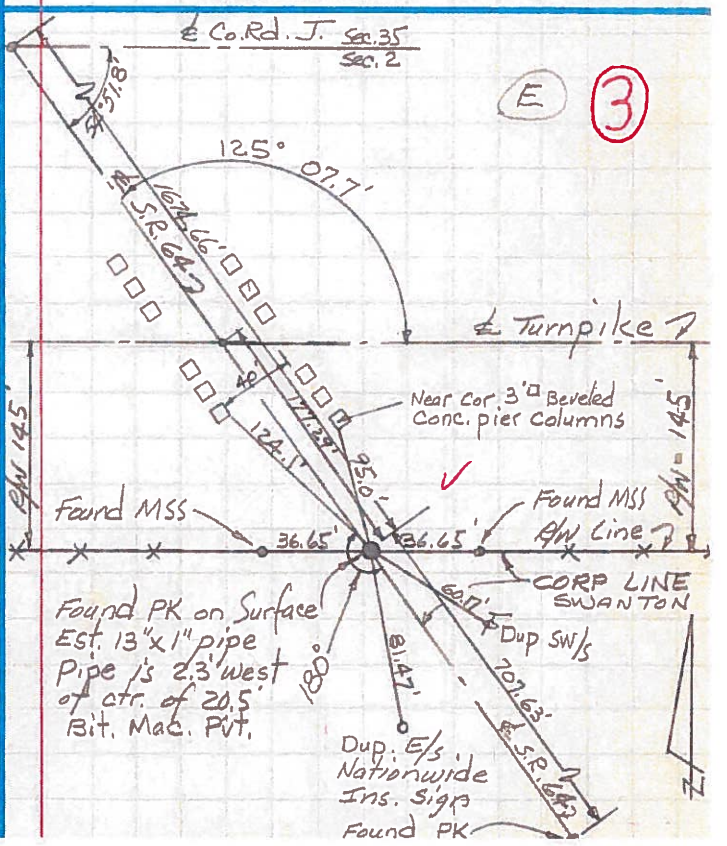 ℄ Co. Rd. J. Sec. 35
Sec. 2
E
3
54° 51.8'
125° 07.7'
1674.66'
℄ S.R. 64
℄ Turnpike
R/W 145'
R/W = 145'
40'
177.29'
124.1'
95.0'
Near Cor. 3'□ Beveled
Conc. pier Columns
Found MSS
Found MSS
R/W Line
36.65'
36.65'
CORP LINE
SWANTON
60.17'
Dup SW/s
Found PK on Surface
Est. 13" x 1" pipe
Pipe is 2.3' west
of ctr. of 20.5'
Bit. Mac. Pvt.
180°
81.47'
707.63'
℄ S.R. 64
Dup. E/s
Nationwide
Ins. Sign
Found PK
N